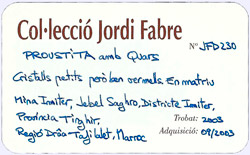 Col·lecció Jordi Fabre
Nº JFD230
PROUSTITA amb Quars
Cristalls petits però ben vermells. En matriu
Mina Imiter, Jebel Saghro, Districte Imiter,
Província Tinghir, Trobat: 2003
Regió Drâa-Tafilalet, Marroc Adquisició: 09/2003